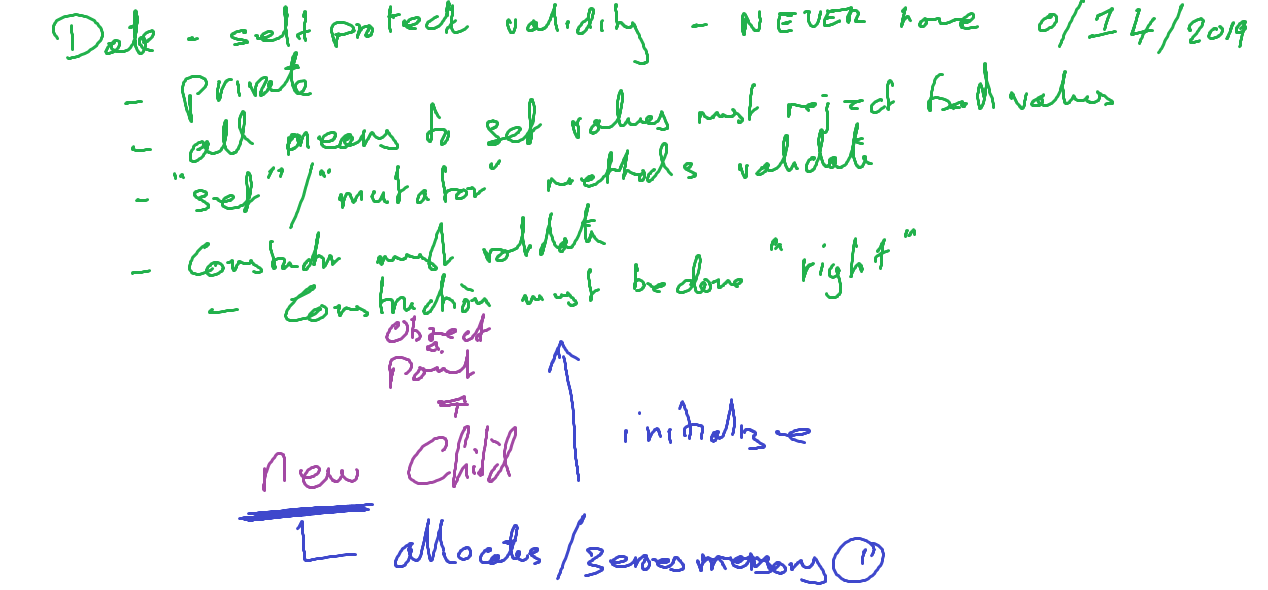 Date - self protect validity - NEVER have 0/14/2019
- private
- all means to set values must reject bad values
- "set"/"mutator" methods validate
- Constructor must validate
- Construction must be done "right"
Object
Parent
initialize
new Child
allocates/zeroes memory ①